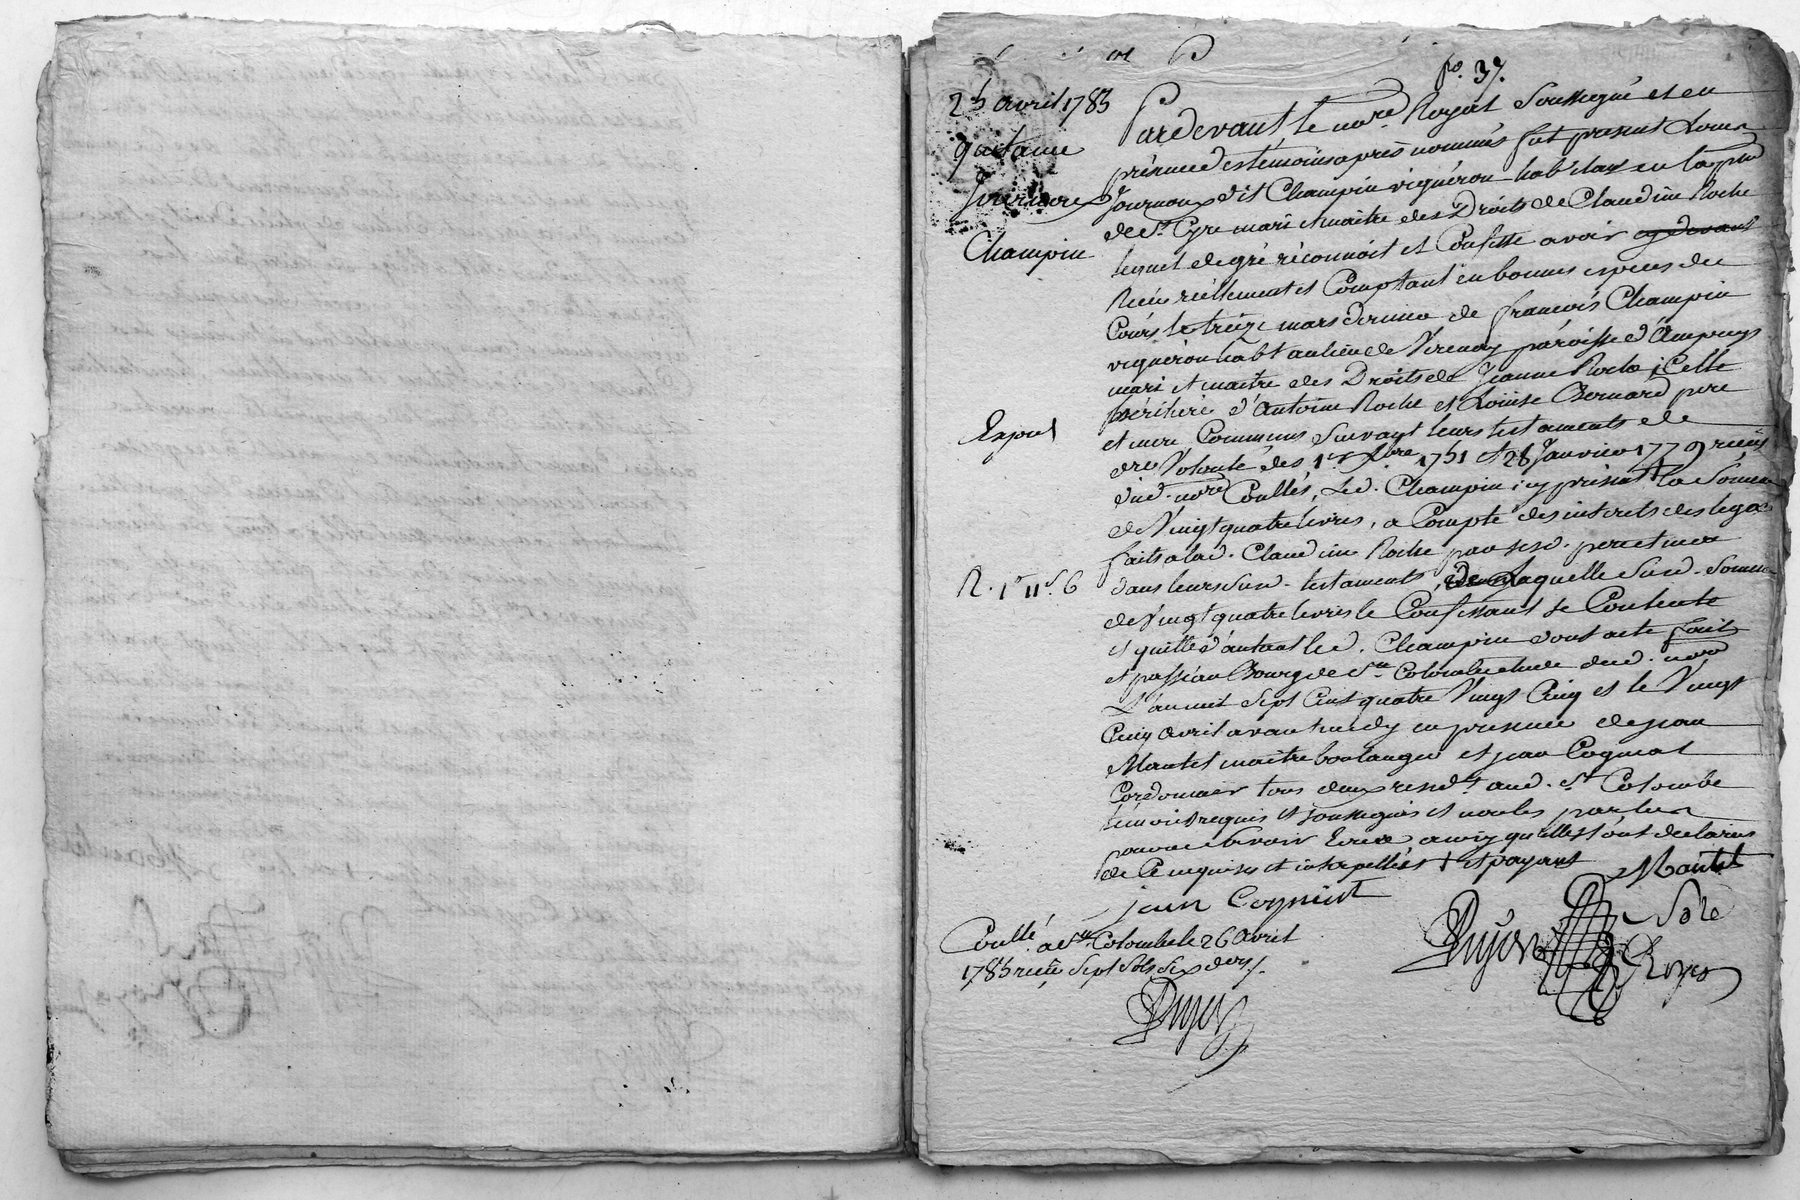 fo. 37.
25 avril 1785
quittance
Journoux
Champin
Exped
R. 1# 11s. 6
Pardevant le nore. Royal Soussigné et en
présence des témoins après nommés fut présent Louis
Journoux dit Champin vigneron habitant en la pse
de St. Cyr mari et maitre des Droits de Claudine Roche
lequel de gré réconnoit et Confesse avoir cy devant
Recu réellement et Comptant en bonnes especes du
Cours le treize mars dernier de françois Champin
vigneron habt au lieu de Verenay paroisse d'Ampuys
mari et maitre des Droits de Jeanne Roche icelle
héritière d'Antoine Roche et Loüise Bernard pere
et mere Communs Suivant leurs testaments de
dre Volonté des 1er Xbre 1751 et 28 Janvier 1779 reçus
dud. nore Coullés, Led. Champin icy présent + la Somme
de Vingt quatre livres, a Compte des interets des legats
faits a lad. Claudine Roche par sesd. pere et mere
dans leurs susd. testaments, de Laquelle Susd. Somme
de Vingt quatre livres le Confessant Se Contente
et quitte d'autant led. Champin dont acte fait
et passé au Bourg de Ste Colombe etude dud. nore
L'an mil Sept Cent quatre Vingt Cinq et le Vingt
Cinq avril avant midy en presence de jean
Mantet maitre boulanger et jean Cognat
Cordonnier tous deux resid.t aud. St Colombe
témoins requis et soussignés et non les parties
pour ne Scavoir Ecrire ainsy qu'elles l'ont declaré
de Ce enquises et interpellées + et payant
Mantet
jean Cognat
Pujos
Nore
Royal
Coullé a Ste Colombe le 26 avril
1785 recu Sept Sols Six d.ers
Pujos